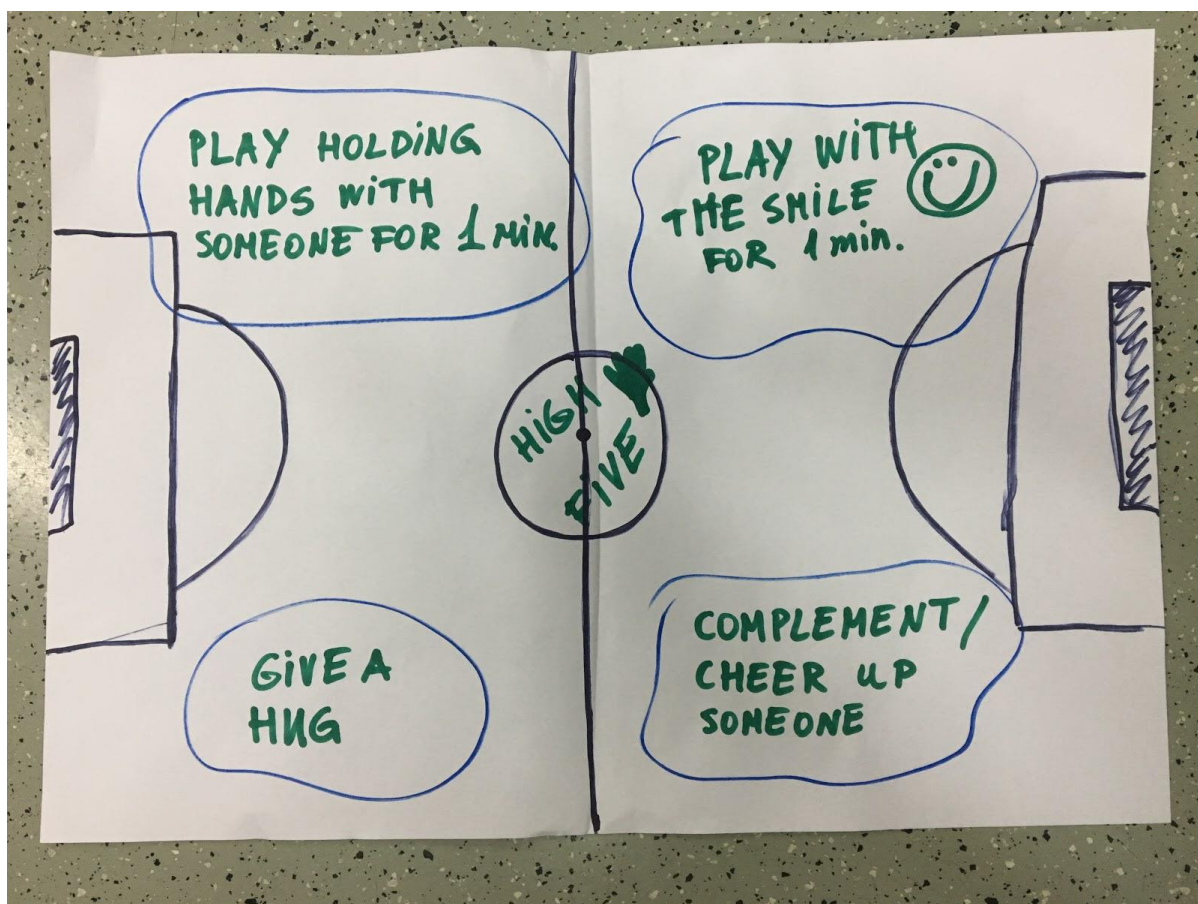 PLAY HOLDING
HANDS WITH
SOMEONE FOR 1 MIN.
PLAY WITH
THE SMILE
FOR 1 min.
HIGH
FIVE
GIVE A
HUG
COMPLEMENT/
CHEER UP
SOMEONE